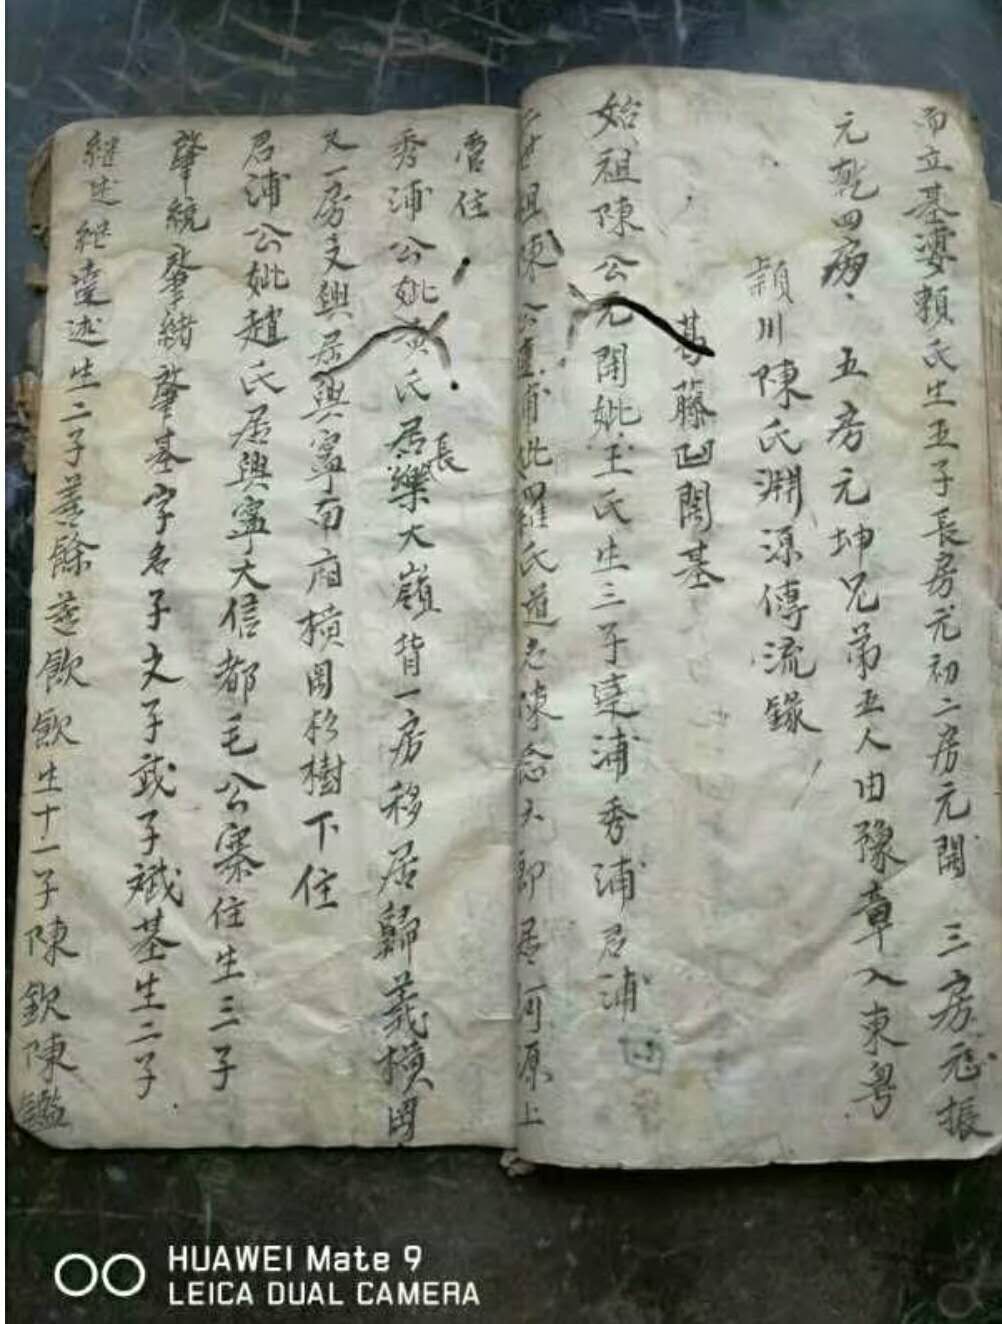 而立基婆賴氏生五子長房元初二房元開 三房元振
元乾四房 五房元坤兄弟五人由豫章入東粵
潁川陳氏淵源傳流錄
葛藤凹開基
始祖陳公元開妣王氏生三子達浦秀浦君浦
二世祖陳公達浦妣羅氏道名陳念大郎居河源上
管住
秀浦公妣黃氏居長樂大嶺背一房移居歸義橫岡
又一房文興居興寧南廂橫岡杉樹下住
君浦公妣趙氏居興寧大信都毛公寨住生三子
肇統肇緒肇基字名子文子武子斌基生二子
继述继達述生二子善餘善飲飲生十一子陳欽陳鑑
HUAWEI Mate 9
LEICA DUAL CAMERA